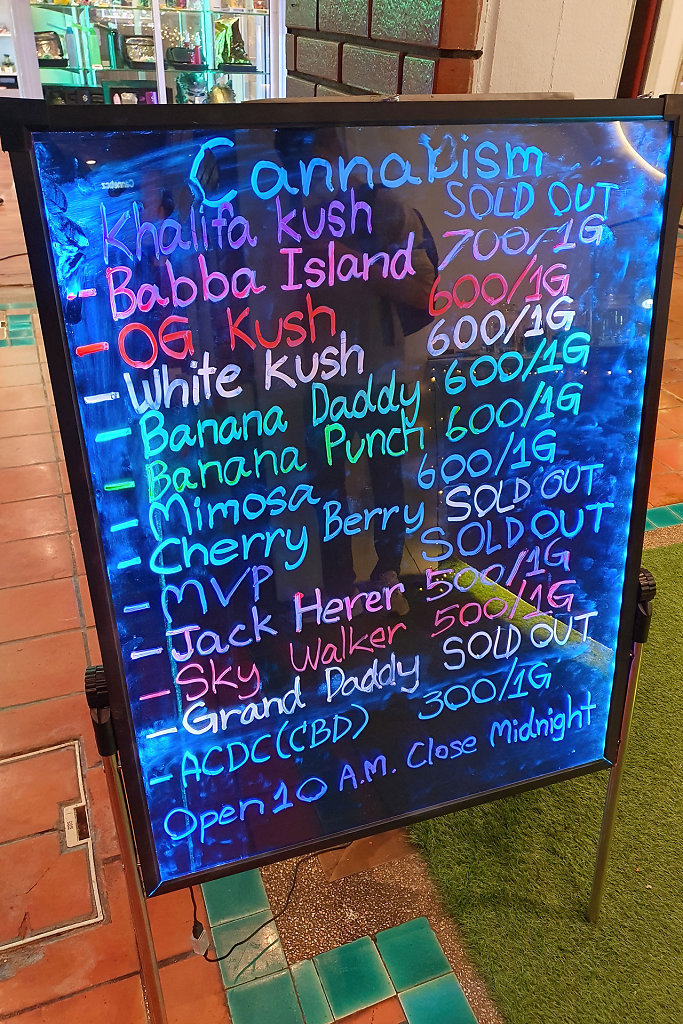 Cannabism
Khalifa Kush SOLD OUT
- Babba Island 700/1G
- OG Kush 600/1G
- White Kush 600/1G
- Banana Daddy 600/1G
- Banana Punch 600/1G
- Mimosa 600/1G
- Cherry Berry SOLD OUT
- MVP SOLD OUT
- Jack Herer 500/1G
- Sky Walker 500/1G
- Grand Daddy SOLD OUT
- ACDC(CBD) 300/1G
Open 10 A.M. Close Midnight